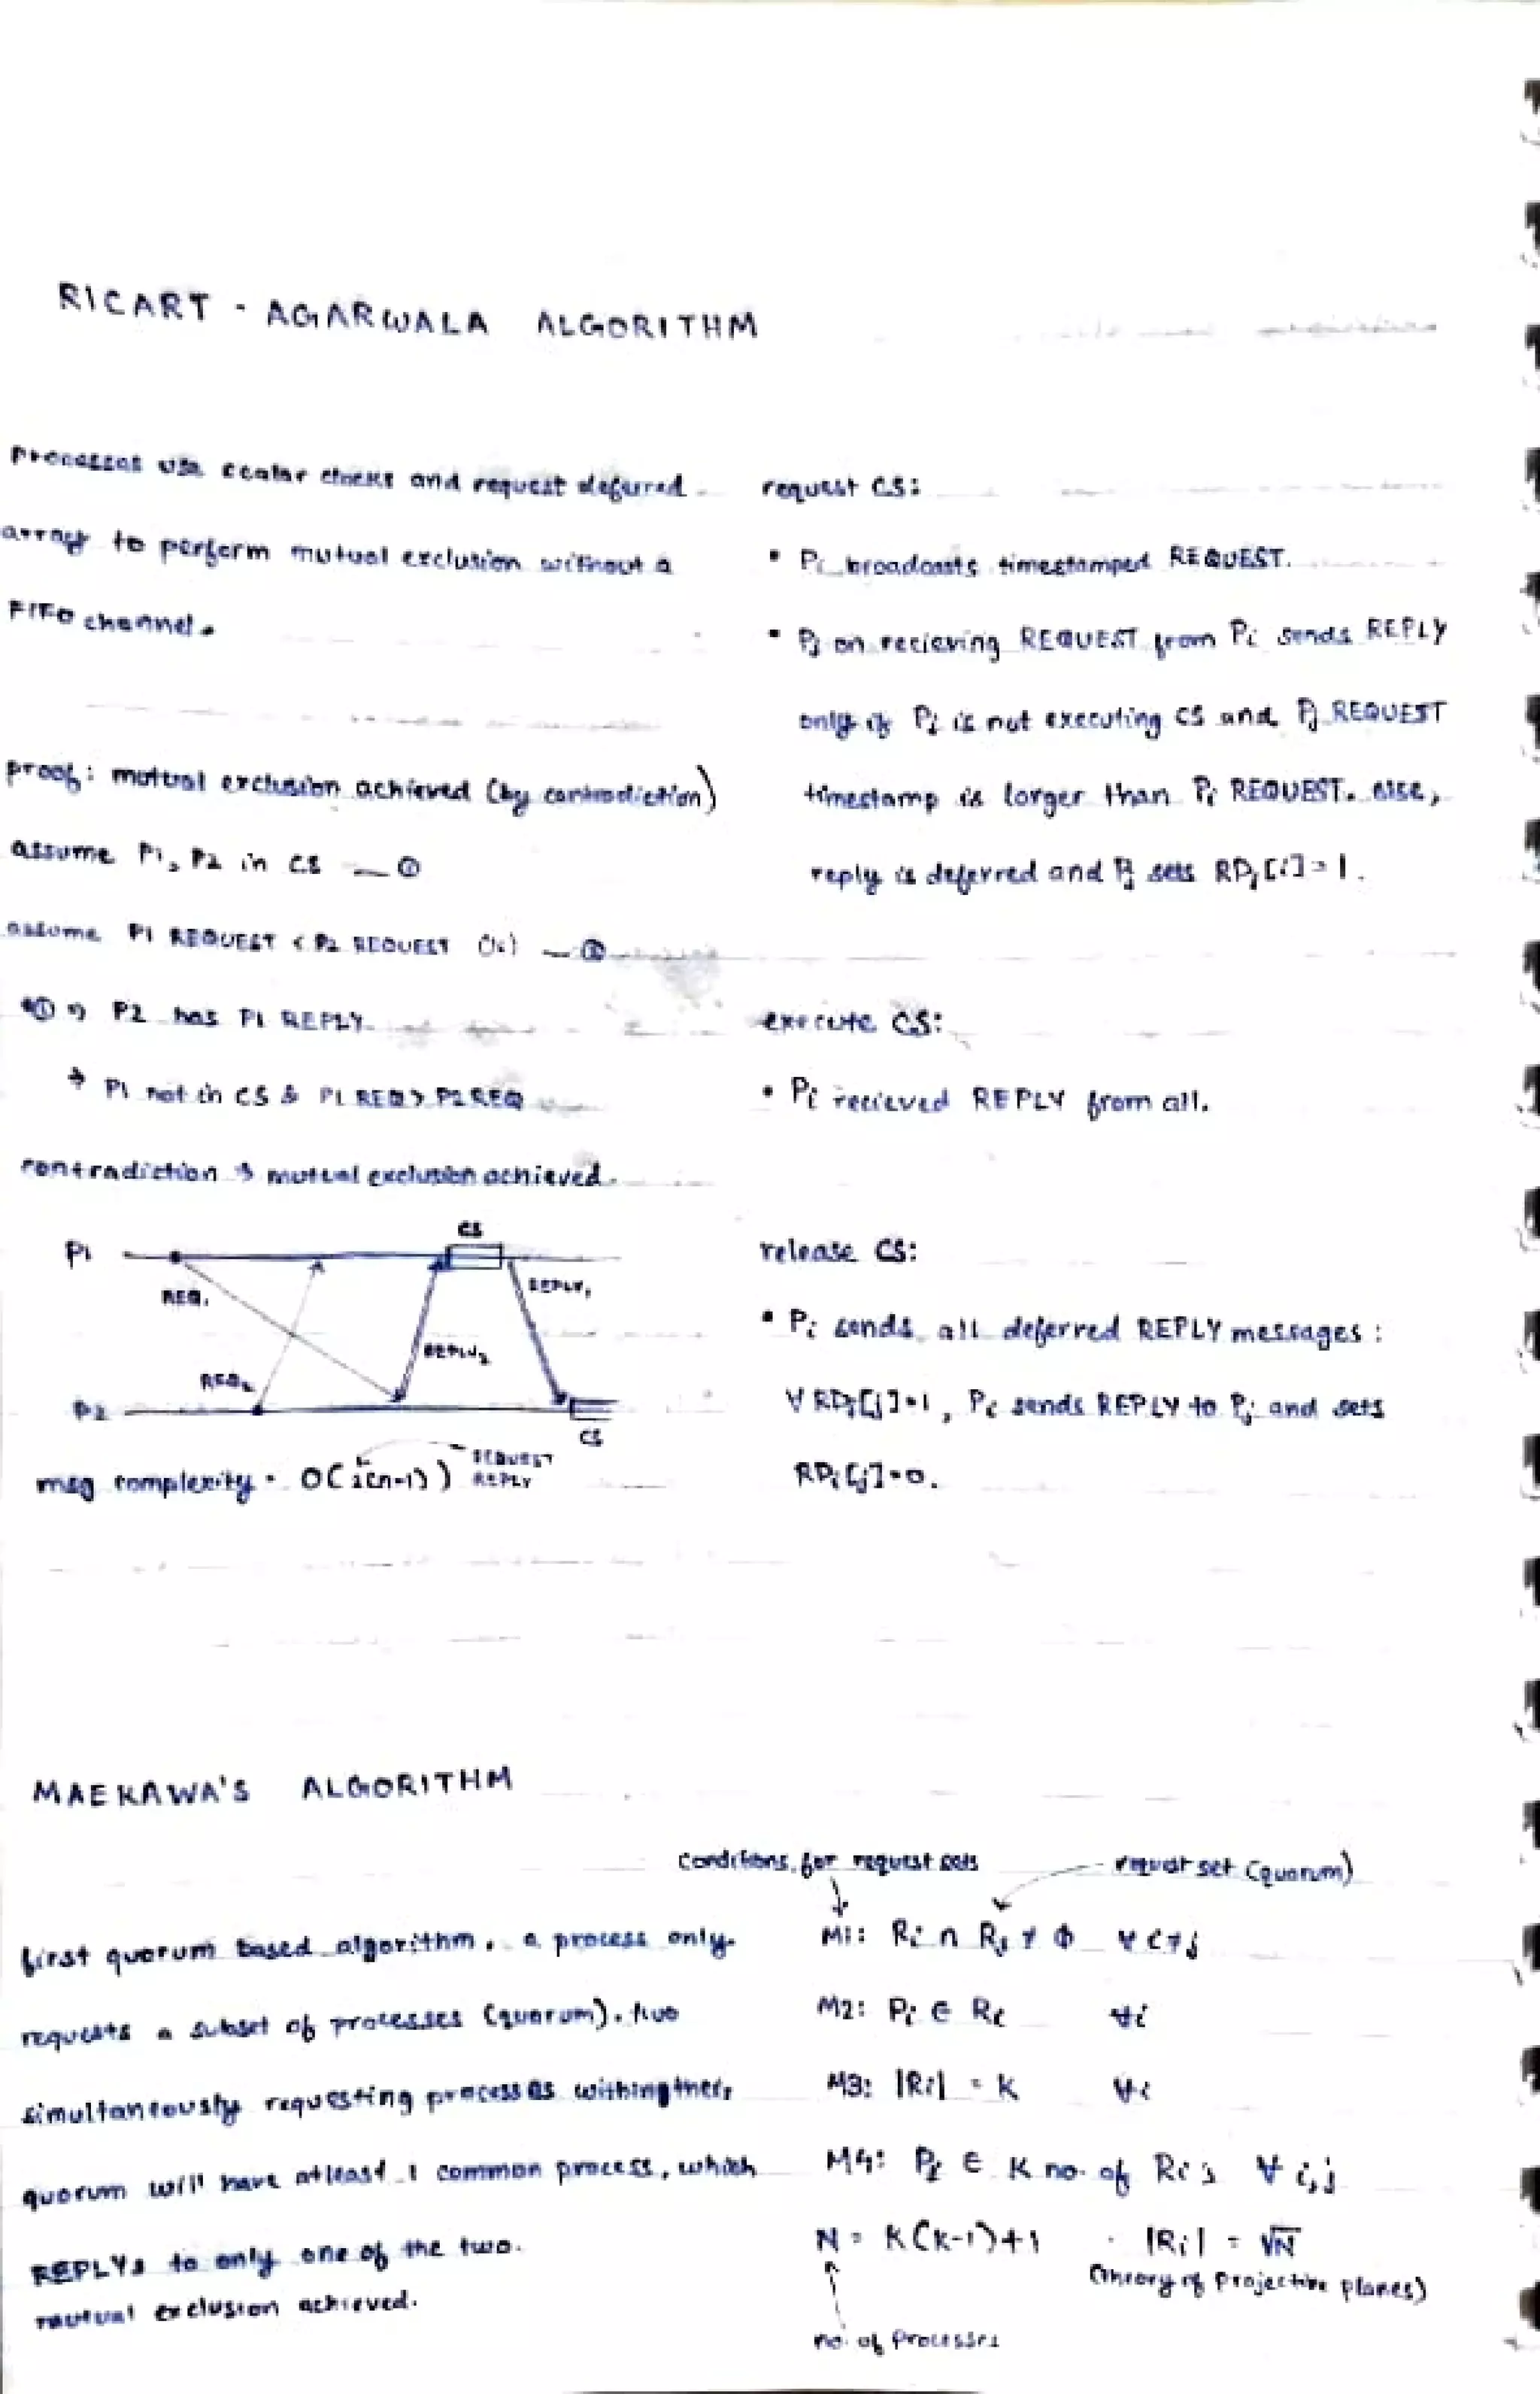 RICART - AGARWALA ALGORITHM
processes use scalar clocks and request deferred
array to perform mutual exclusion without a
FIFO channel.
proof: mutual exclusion achieved (by contradiction)
assume P1, P2 in CS — ①
assume P1 REQUEST < P2 REQUEST — ②
① ⇒ P2 has P1 REPLY
→ P1 not in CS & P1 REQ > P2 REQ
contradiction → mutual exclusion achieved.
CS
P1
REQ₁
REPLY₁
REPLY₂
REQ₂
P2
CS
REQUEST
msg complexity = O(2(n-1)) REPLY
request CS:
• Pi broadcasts timestamped REQUEST.
• Pj on recieving REQUEST from Pi sends REPLY
only if Pj is not executing CS and Pj REQUEST
timestamp is larger than Pi REQUEST. else,
reply is deferred and Pj sets RDj[i] = 1.
execute CS:
• Pi recieved REPLY from all.
release CS:
• Pi sends all deferred REPLY messages :
∀ RDi[j]=1, Pi sends REPLY to Pj and sets
RDi[j]=0.
MAEKAWA'S ALGORITHM
first quorum based algorithm. a process only
requests a subset of processes (quorum). two
simultaneously requesting processes withing their
quorum will have atleast 1 common process, which
REPLYs to only one of the two.
mutual exclusion achieved.
conditions for request sets
request set (quorum)
M1: Ri ∩ Rj ≠ Φ ∀ i≠j
M2: Pi ∈ Ri ∀i
M3: |Ri| = K ∀i
M4: Pj ∈ K no. of Ri's ∀ i,j
N = K(K-1)+1 · |Ri| = √N
(theory of projective planes)
no. of processes